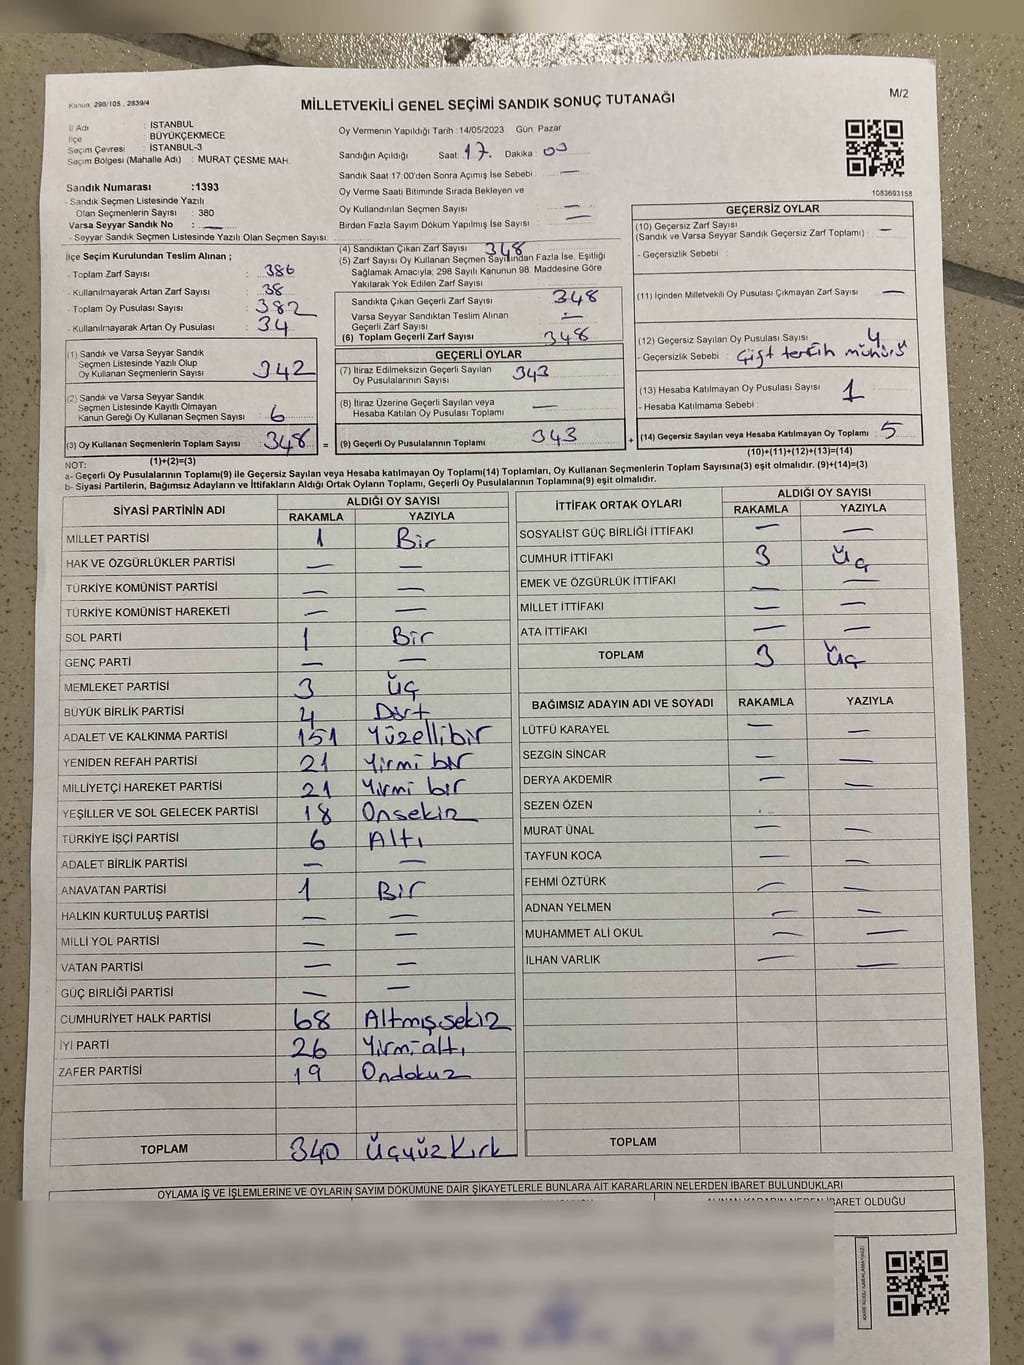 Kanun, 298/105 , 2839/4
MİLLETVEKİLİ GENEL SEÇİMİ SANDIK SONUÇ TUTANAĞI
M/2
İl Adı : İSTANBUL
İlçe : BÜYÜKÇEKMECE
Seçim Çevresi : İSTANBUL-3
Seçim Bölgesi (Mahalle Adı) : MURAT ÇESME MAH.
Sandık Numarası :1393
- Sandık Seçmen Listesinde Yazılı
Olan Seçmenlerin Sayısı : 380
Varsa Seyyar Sandık No : —
- Seyyar Sandık Seçmen Listesinde Yazılı Olan Seçmen Sayısı:
Oy Vermenin Yapıldığı Tarih :14/05/2023 Gün: Pazar
Sandığın Açıldığı Saat: 17. Dakika: 00
Sandık Saat 17:00'den Sonra Açımış İse Sebebi : —
Oy Verme Saati Bitiminde Sırada Bekleyen ve
Oy Kullandırılan Seçmen Sayısı : —
Birden Fazla Sayım Döküm Yapılmış İse Sayısı : —
1083693158
İlçe Seçim Kurulundan Teslim Alınan ;
- Toplam Zarf Sayısı : 386
- Kullanılmayarak Artan Zarf Sayısı : 38
- Toplam Oy Pusulası : 382
- Kullanılmayarak Artan Oy Pusulası : 34
(1) Sandık ve Varsa Seyyar Sandık
Seçmen Listesinde Yazılı Olup
Oy Kullanan Seçmenlerin Sayısı : 342
(2) Sandık ve Varsa Seyyar Sandık
Seçmen Listesinde Kayıtlı Olmayan
Kanun Gereği Oy Kullanan Seçmen Sayısı : 6
(3) Oy Kullanan Seçmenlerin Toplam Sayısı : 348
(1)+(2)=(3)
(4) Sandıktan Çıkan Zarf Sayısı : 348
(5) Zarf Sayısı Oy Kullanan Seçmen Sayısından Fazla İse, Eşitliği
Sağlamak Amacıyla; 298 Sayılı Kanunun 98. Maddesine Göre
Yakılarak Yok Edilen Zarf Sayısı :
Sandıkta Çıkan Geçerli Zarf Sayısı : 348
Varsa Seyyar Sandıktan Teslim Alınan
Geçerli Zarf Sayısı : —
(6) Toplam Geçerli Zarf Sayısı : 348
GEÇERLİ OYLAR
(7) İtiraz Edilmeksizin Geçerli Sayılan
Oy Pusulalarının Sayısı : 343
(8) İtiraz Üzerine Geçerli Sayılan veya
Hesaba Katılan Oy Pusulası Toplamı : —
= (9) Geçerli Oy Pusulalarının Toplamı : 343
GEÇERSİZ OYLAR
(10) Geçersiz Zarf Sayısı : —
(Sandık ve Varsa Seyyar Sandık Geçersiz Zarf Toplamı)
- Geçersizlik Sebebi :
(11) İçinden Milletvekili Oy Pusulası Çıkmayan Zarf Sayısı : —
(12) Geçersiz Sayılan Oy Pusulası Sayısı : 4
- Geçersizlik Sebebi : Çift tercih mühür
(13) Hesaba Katılmayan Oy Pusulası Sayısı : 1
- Hesaba Katılmama Sebebi :
+ (14) Geçersiz Sayılan veya Hesaba Katılmayan Oy Toplamı : 5
(10)+(11)+(12)+(13)=(14)
NOT:
a- Geçerli Oy Pusulalarının Toplamı(9) ile Geçersiz Sayılan veya Hesaba katılmayan Oy Toplamı(14) Toplamları, Oy Kullanan Seçmenlerin Toplam Sayısına(3) eşit olmalıdır. (9)+(14)=(3)
b- Siyasi Partilerin, Bağımsız Adayların ve İttifakların Aldığı Ortak Oyların Toplamı, Geçerli Oy Pusulalarının Toplamına(9) eşit olmalıdır.
SİYASİ PARTİNİN ADI ALDIĞI OY SAYISI
RAKAMLA YAZIYLA
MİLLET PARTİSİ 1 Bir
HAK VE ÖZGÜRLÜKLER PARTİSİ — —
TÜRKİYE KOMÜNİST PARTİSİ — —
TÜRKİYE KOMÜNİST HAREKETİ — —
SOL PARTİ 1 Bir
GENÇ PARTİ — —
MEMLEKET PARTİSİ 3 üç
BÜYÜK BİRLİK PARTİSİ 4 Dört
ADALET VE KALKINMA PARTİSİ 151 Yüzellibir
YENİDEN REFAH PARTİSİ 21 Yirmi bir
MİLLİYETÇİ HAREKET PARTİSİ 21 Yirmi bir
YEŞİLLER VE SOL GELECEK PARTİSİ 18 Onsekiz
TÜRKİYE İŞÇİ PARTİSİ 6 Altı
ADALET BİRLİK PARTİSİ — —
ANAVATAN PARTİSİ 1 Bir
HALKIN KURTULUŞ PARTİSİ — —
MİLLİ YOL PARTİSİ — —
VATAN PARTİSİ — —
GÜÇ BİRLİĞİ PARTİSİ — —
CUMHURİYET HALK PARTİSİ 68 Altmışsekiz
İYİ PARTİ 26 Yirmialtı
ZAFER PARTİSİ 19 Ondokuz
TOPLAM 340 ÜçyüzKırk
İTTİFAK ORTAK OYLARI ALDIĞI OY SAYISI
RAKAMLA YAZIYLA
SOSYALİST GÜÇ BİRLİĞİ İTTİFAKI — —
CUMHUR İTTİFAKI 3 üç
EMEK VE ÖZGÜRLÜK İTTİFAKI — —
MİLLET İTTİFAKI — —
ATA İTTİFAKI — —
TOPLAM 3 üç
BAĞIMSIZ ADAYIN ADI VE SOYADI RAKAMLA YAZIYLA
LÜTFÜ KARAYEL — —
SEZGİN SİNCAR — —
DERYA AKDEMİR — —
SEZEN ÖZEN
MURAT ÜNAL — —
TAYFUN KOCA — —
FEHMİ ÖZTÜRK — —
ADNAN YELMEN — —
MUHAMMET ALİ OKUL — —
İLHAN VARLIK — —
TOPLAM
OYLAMA İŞ VE İŞLEMLERİNE VE OYLARIN SAYIM DÖKÜMÜNE DAİR ŞİKAYETLERLE BUNLARA AİT KARARLARIN NELERDEN İBARET BULUNDUKLARI
ALINAN KARARIN NEDEN İBARET OLDUĞU